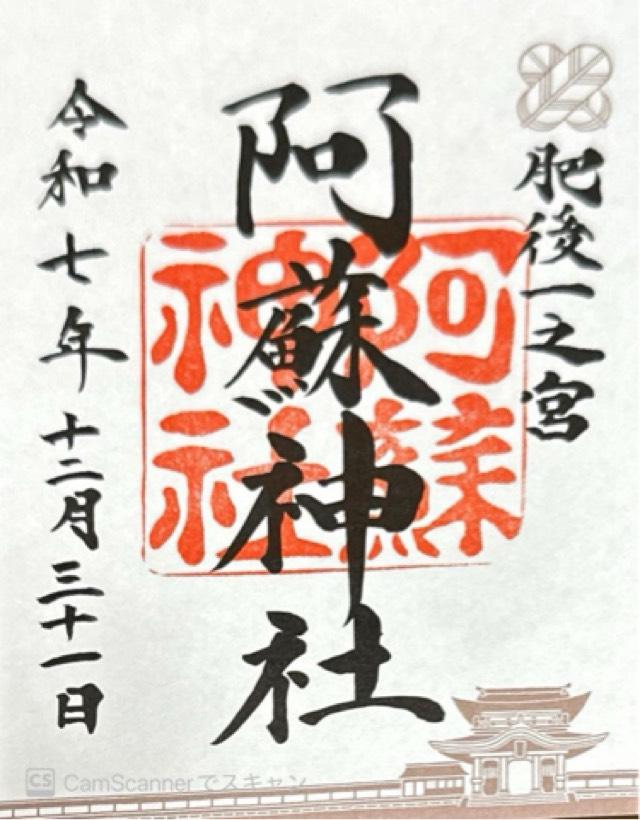 肥後一之宮
阿蘇神社
阿蘇神社
令和七年十二月三十一日
CS CamScannerでスキャン